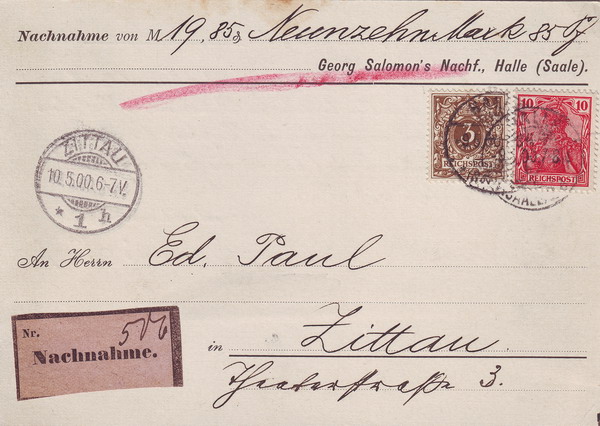 Nachnahme von M 19,85₰ Neunzehn Mark 85 Pf
Georg Salomon's Nachf., Halle (Saale).
3
REICHSPOST
10
REICHSPOST
ZITTAU
10.5.00.6-7V.
* 1 h
An Herrn Ed. Paul
Nr. 506
Nachnahme.
in Zittau
Theaterstraße 3.